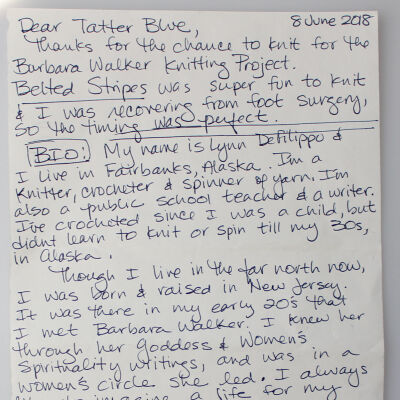 Dear Tatter Blue, 8 June 2018
Thanks for the chance to knit for the
Barbara Walker Knitting Project.
Belted Stripes was super fun to knit
& I was recovering from foot surgery,
so the timing was perfect.
BIO: My name is Lynn DeFilippo &
I live in Fairbanks, Alaska. I'm a
Knitter, crocheter & spinner of yarn. I'm
also a public school teacher & a writer.
I've crocheted since I was a child, but
didnt learn to knit or spin till my 30s,
in Alaska.
Though I live in the far north now,
I was born & raised in New Jersey.
It was there in my early 20's that
I met Barbara Walker. I knew her
through her Goddess & Women's
Spirituality writings, and was in a
women's circle she led. I always
imagine a life for my